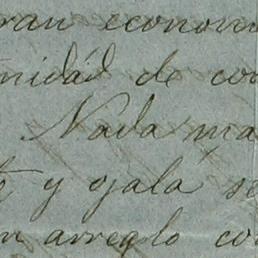 ran econom
nidad de con
Nada ma
y ojala se
un arreglo co